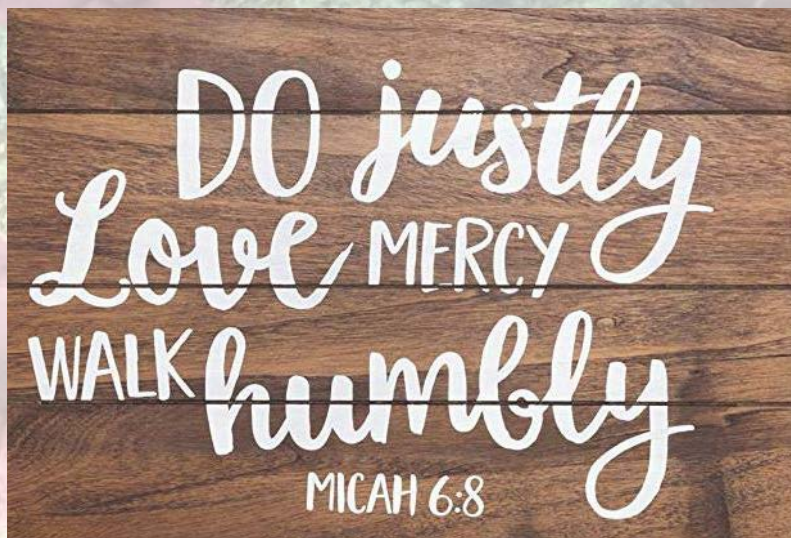 DO justly
Love MERCY
WALK humbly
MICAH 6:8